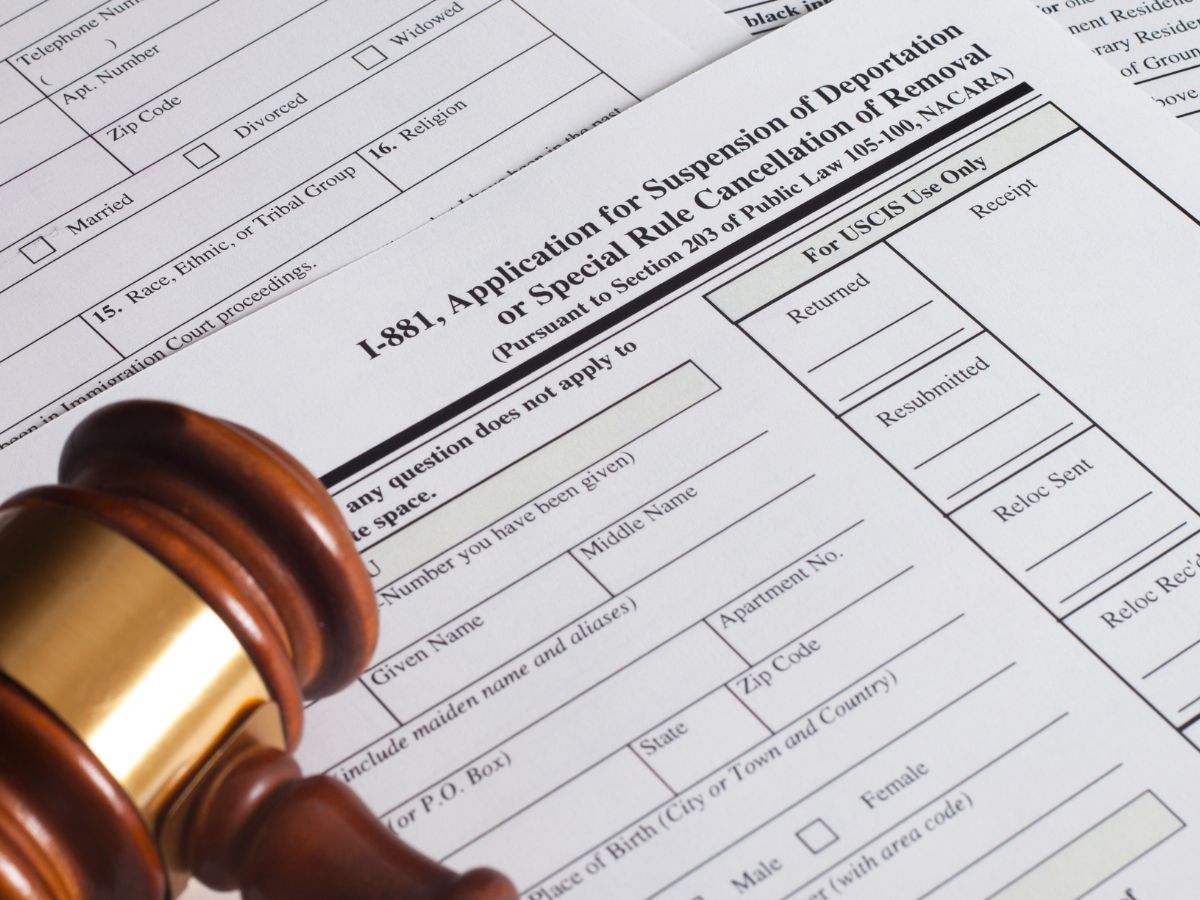 Telephone Num
( )
Apt. Number
Zip Code
Widowed
Divorced
Married
16. Religion
15. Race, Ethnic, or Tribal Group
in the past
been in Immigration Court proceedings.
black ink
for one
nent Residen
rary Reside
of Groun
bove
I-881, Application for Suspension of Deportation
or Special Rule Cancellation of Removal
(Pursuant to Section 203 of Public Law 105-100, NACARA)
For USCIS Use Only
Receipt
Returned
Resubmitted
Reloc Sent
Reloc Rec'd
any question does not apply to
te space.
U
-Number you have been given)
Given Name
Middle Name
include maiden name and aliases)
(or P.O. Box)
Apartment No.
State
Zip Code
Place of Birth (City or Town and Country)
Male
Female
r (with area code)
of